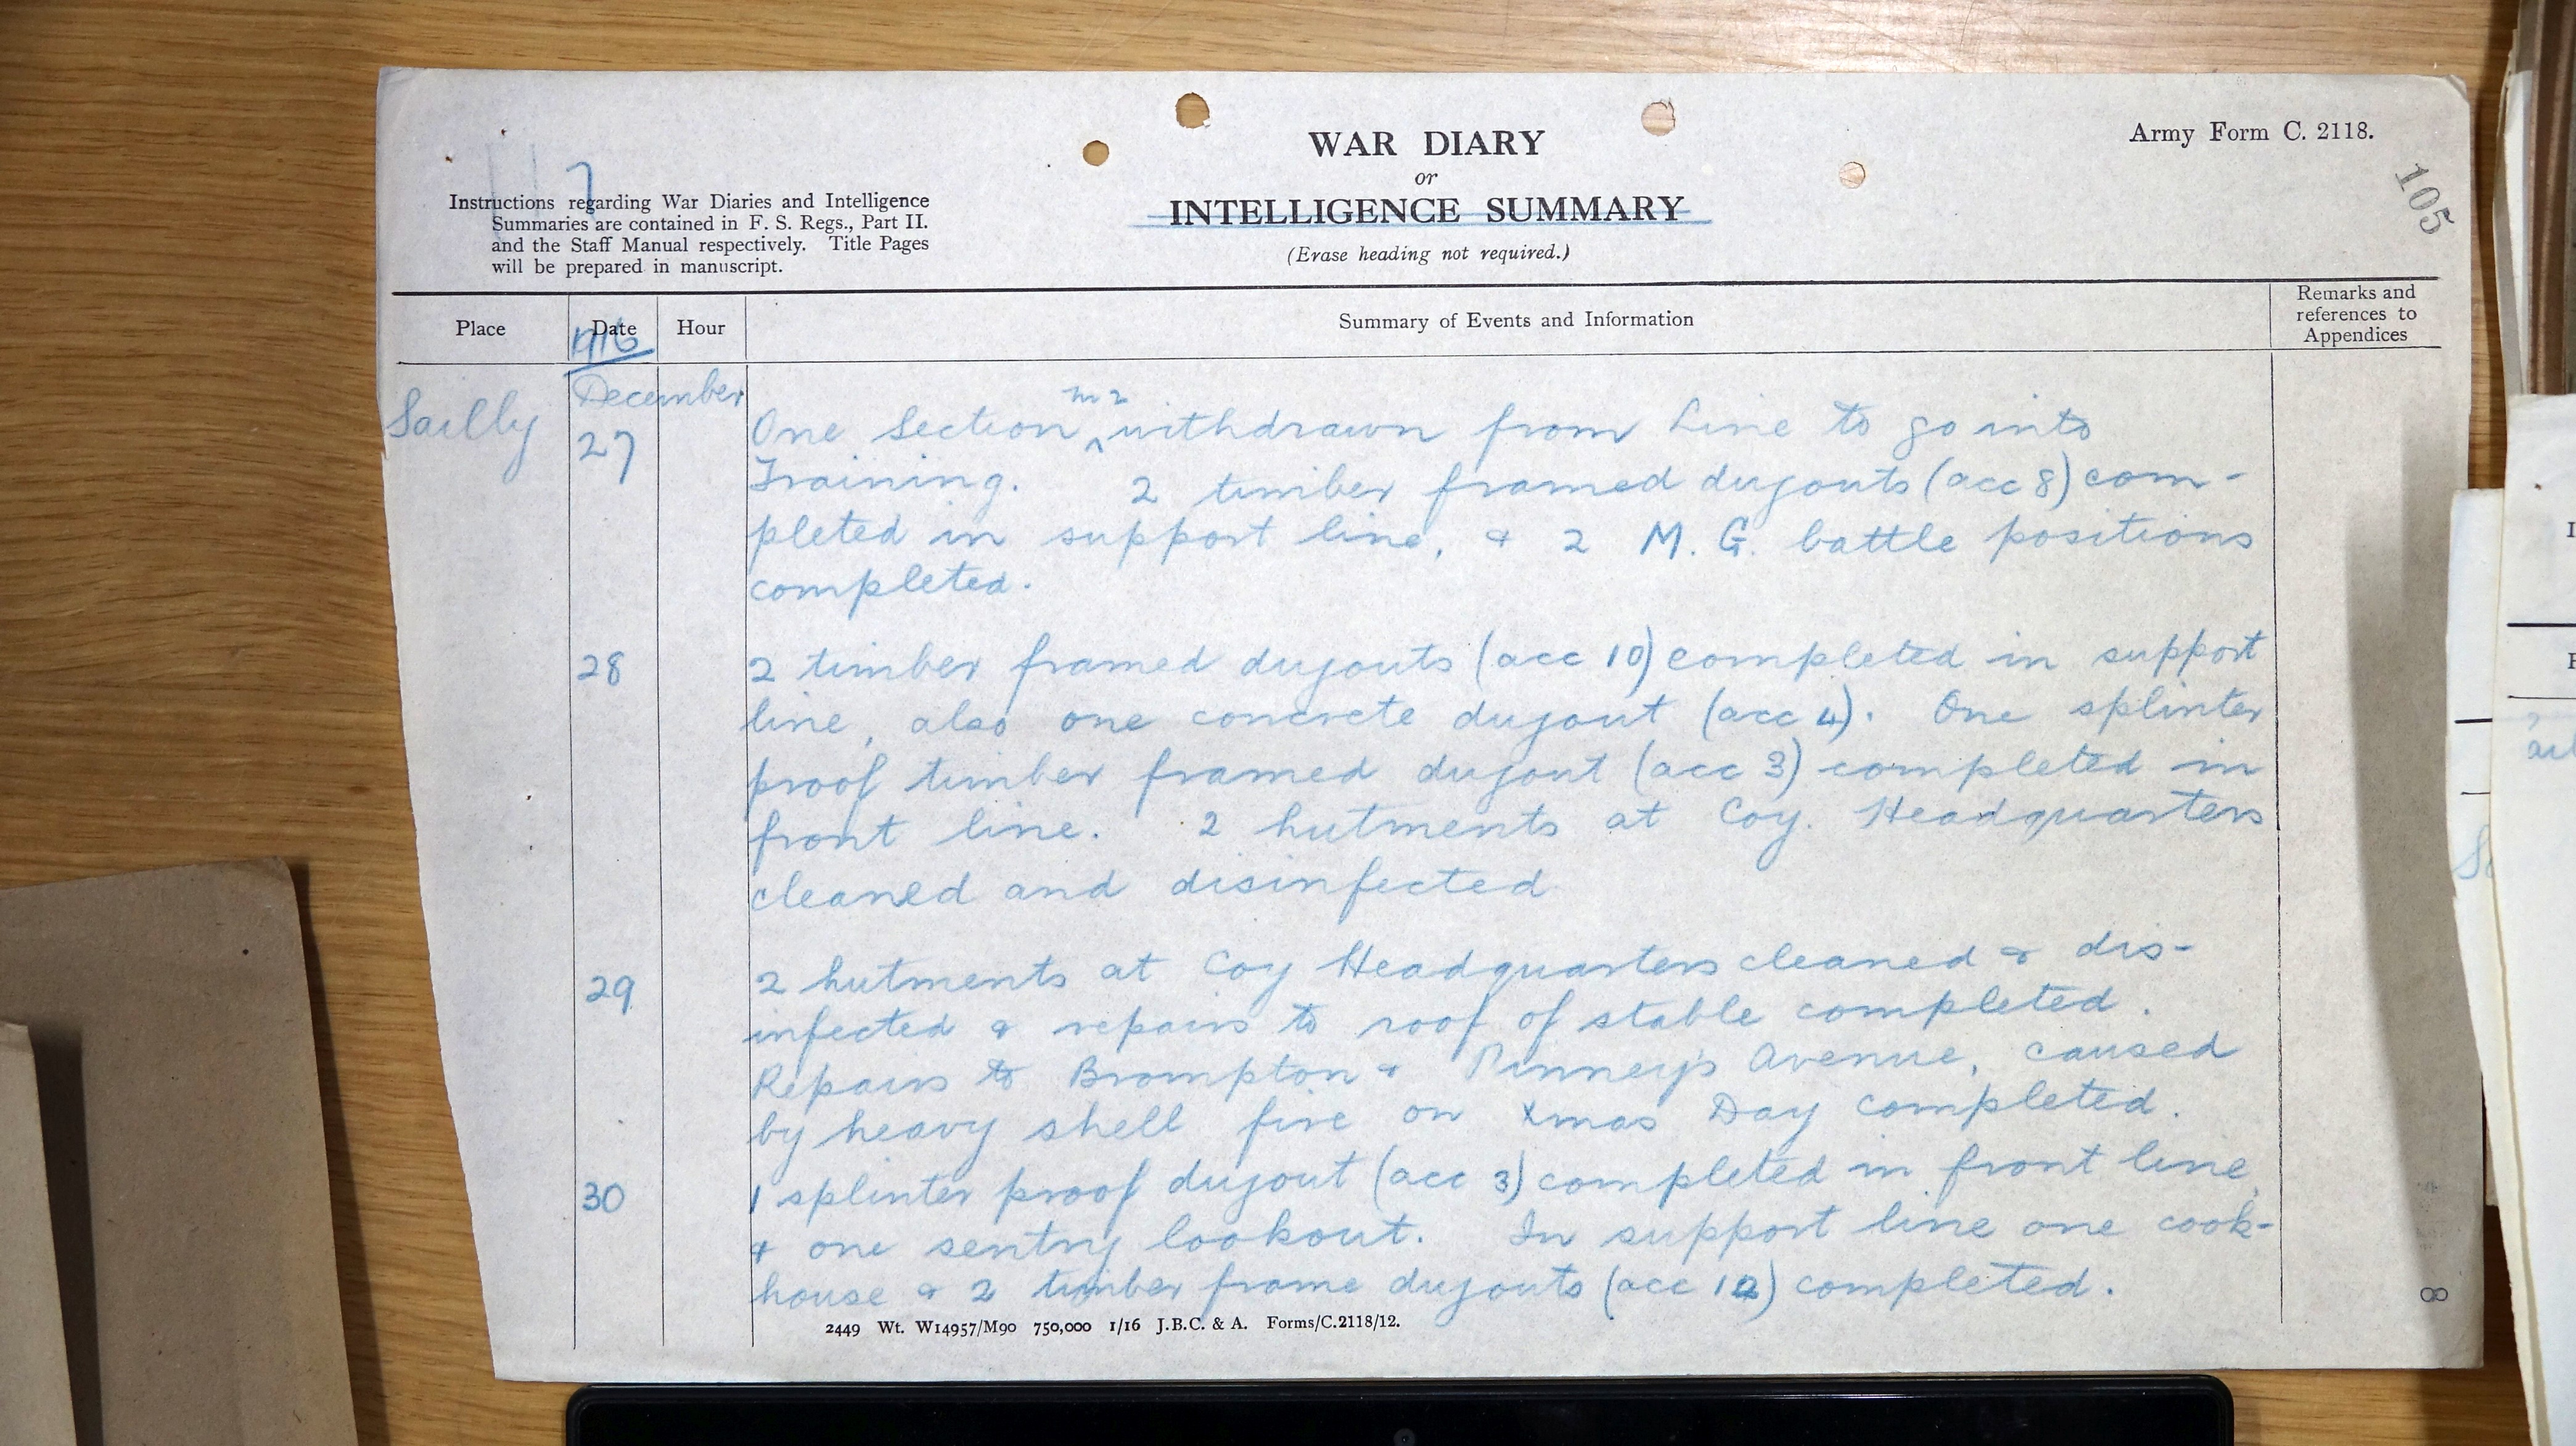 Army Form C. 2118.
105
WAR DIARY
or
INTELLIGENCE SUMMARY
(Erase heading not required.)
117
Instructions regarding War Diaries and Intelligence
Summaries are contained in F. S. Regs., Part II.
and the Staff Manual respectively. Title Pages
will be prepared in manuscript.
Place
Date
Hour
Summary of Events and Information
Remarks and
references to
Appendices
1916
December
Sailly
27
One Section ^ No 2 withdrawn from Line to go into
Training. 2 timber framed dugouts (acc 8) com-
pleted in support line, & 2 M. G. battle positions
completed.
28
2 timber framed dugouts (acc 10) completed in support
line, also one concrete dugout (acc 4). One splinter
proof timber framed dugout (acc 3) completed in
front line. 2 hutments at Coy. Headquarters
cleaned and disinfected
29
2 hutments at Coy Headquarters cleaned & dis-
infected & repairs to roof of stable completed.
Repairs to Brompton & Pinney's Avenue, caused
by heavy shell fire on Xmas Day completed.
30
1 splinter proof dugout (acc 3) completed in front line,
& one sentry lookout. In support line one cook-
house & 2 timber frame dugouts (acc 12) completed.
2449 Wt. W14957/M90 750,000 1/16 J.B.C. & A. Forms/C.2118/12.
8